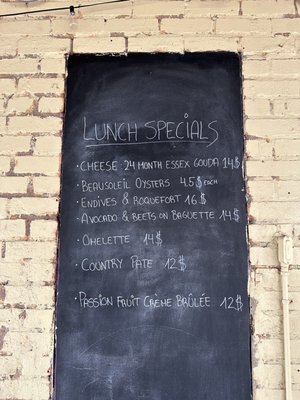 LUNCH SPECIALS
· CHEESE 24 MONTH ESSEX GOUDA 14$
· BEAUSOLEIL OYSTERS 4.5$ EACH
· ENDIVES & ROQUEFORT 16$
· AVOCADO & BEETS ON BAGUETTE 14$
· OMELETTE 14$
· COUNTRY PATE 12$
· PASSION FRUIT CRÈME BRÛLÉE 12$